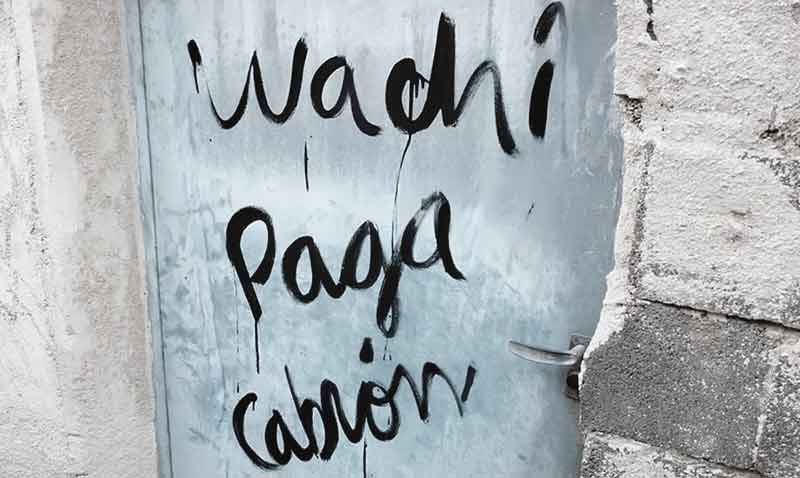 Wachi
Paga
Cabrón